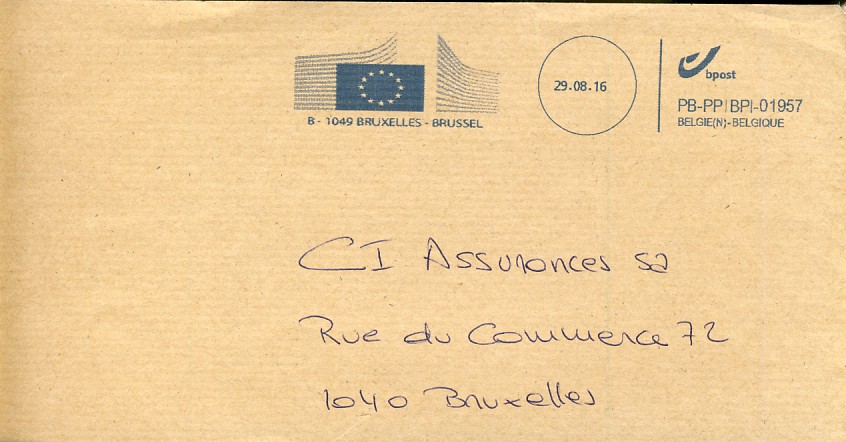 B - 1049 BRUXELLES - BRUSSEL
29.08.16
bpost
PB-PP|BPI-01957
BELGIE(N)-BELGIQUE
CI Assurances sa
Rue du Commerce 72
1040 Bruxelles